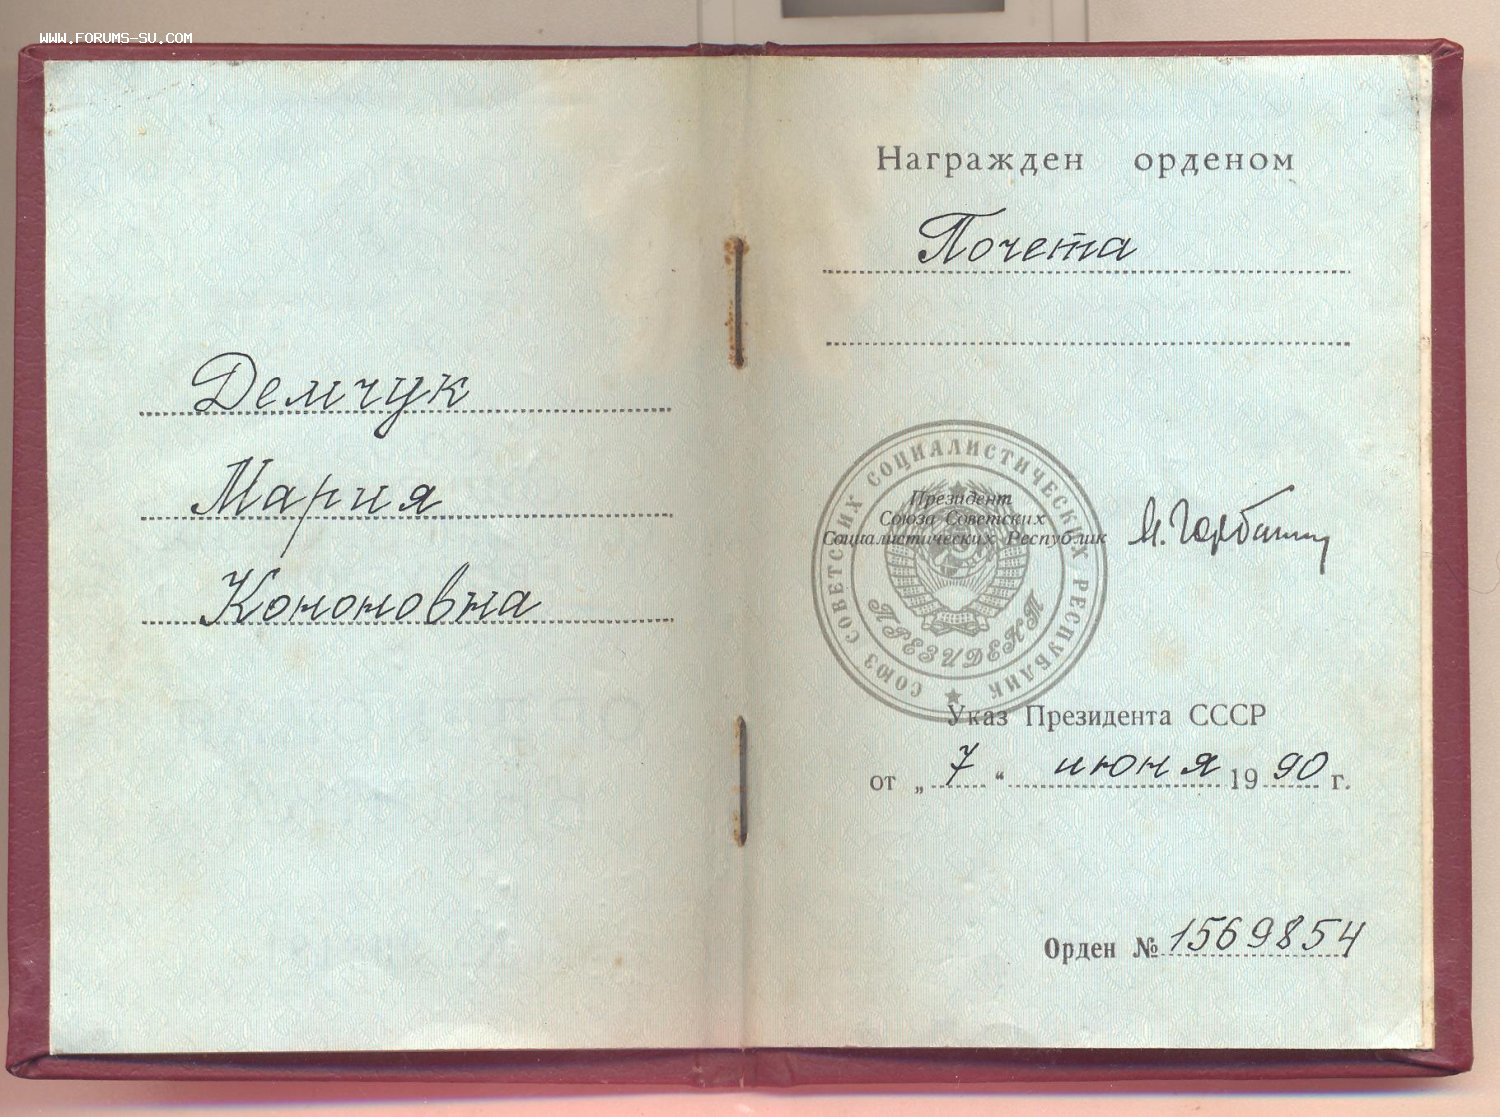 WWW.FORUMS-SU.COM
Демчук
Мария
Кононовна
Награжден орденом
Почета
Президент
Союза Советских
Социалистических Республик
М. Горбачев
СОЮЗ СОВЕТСКИХ СОЦИАЛИСТИЧЕСКИХ РЕСПУБЛИК
ПРЕЗИДЕНТ
Указ Президента СССР
от „ 7 “ июня 19 90 г.
Орден № 1569854